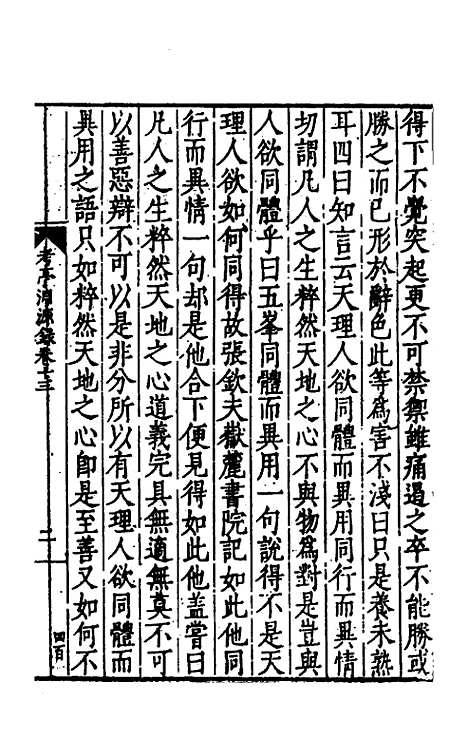 得下不覺突起更不可禁禦雖痛遏之卒不能勝或
勝之而已形於辭色此等爲害不淺曰只是養未熟
耳四曰知言云天理人欲同體而異用同行而異情
切謂凡人之生粹然天地之心不與物爲對是豈與
人欲同體乎曰五峯同體而異用一句說得不是天
理人欲如何同得故張欽夫嶽麓書院記如此他同
行而異情一句却是他合下便見得如此他盖嘗曰
凡人之生粹然天地之心道義完具無適無莫不可
以善惡辯不可以是非分所以有天理人欲同體而
異用之語只如粹然天地之心即是至善又如何不
考亭淵源錄卷十三
二
四百